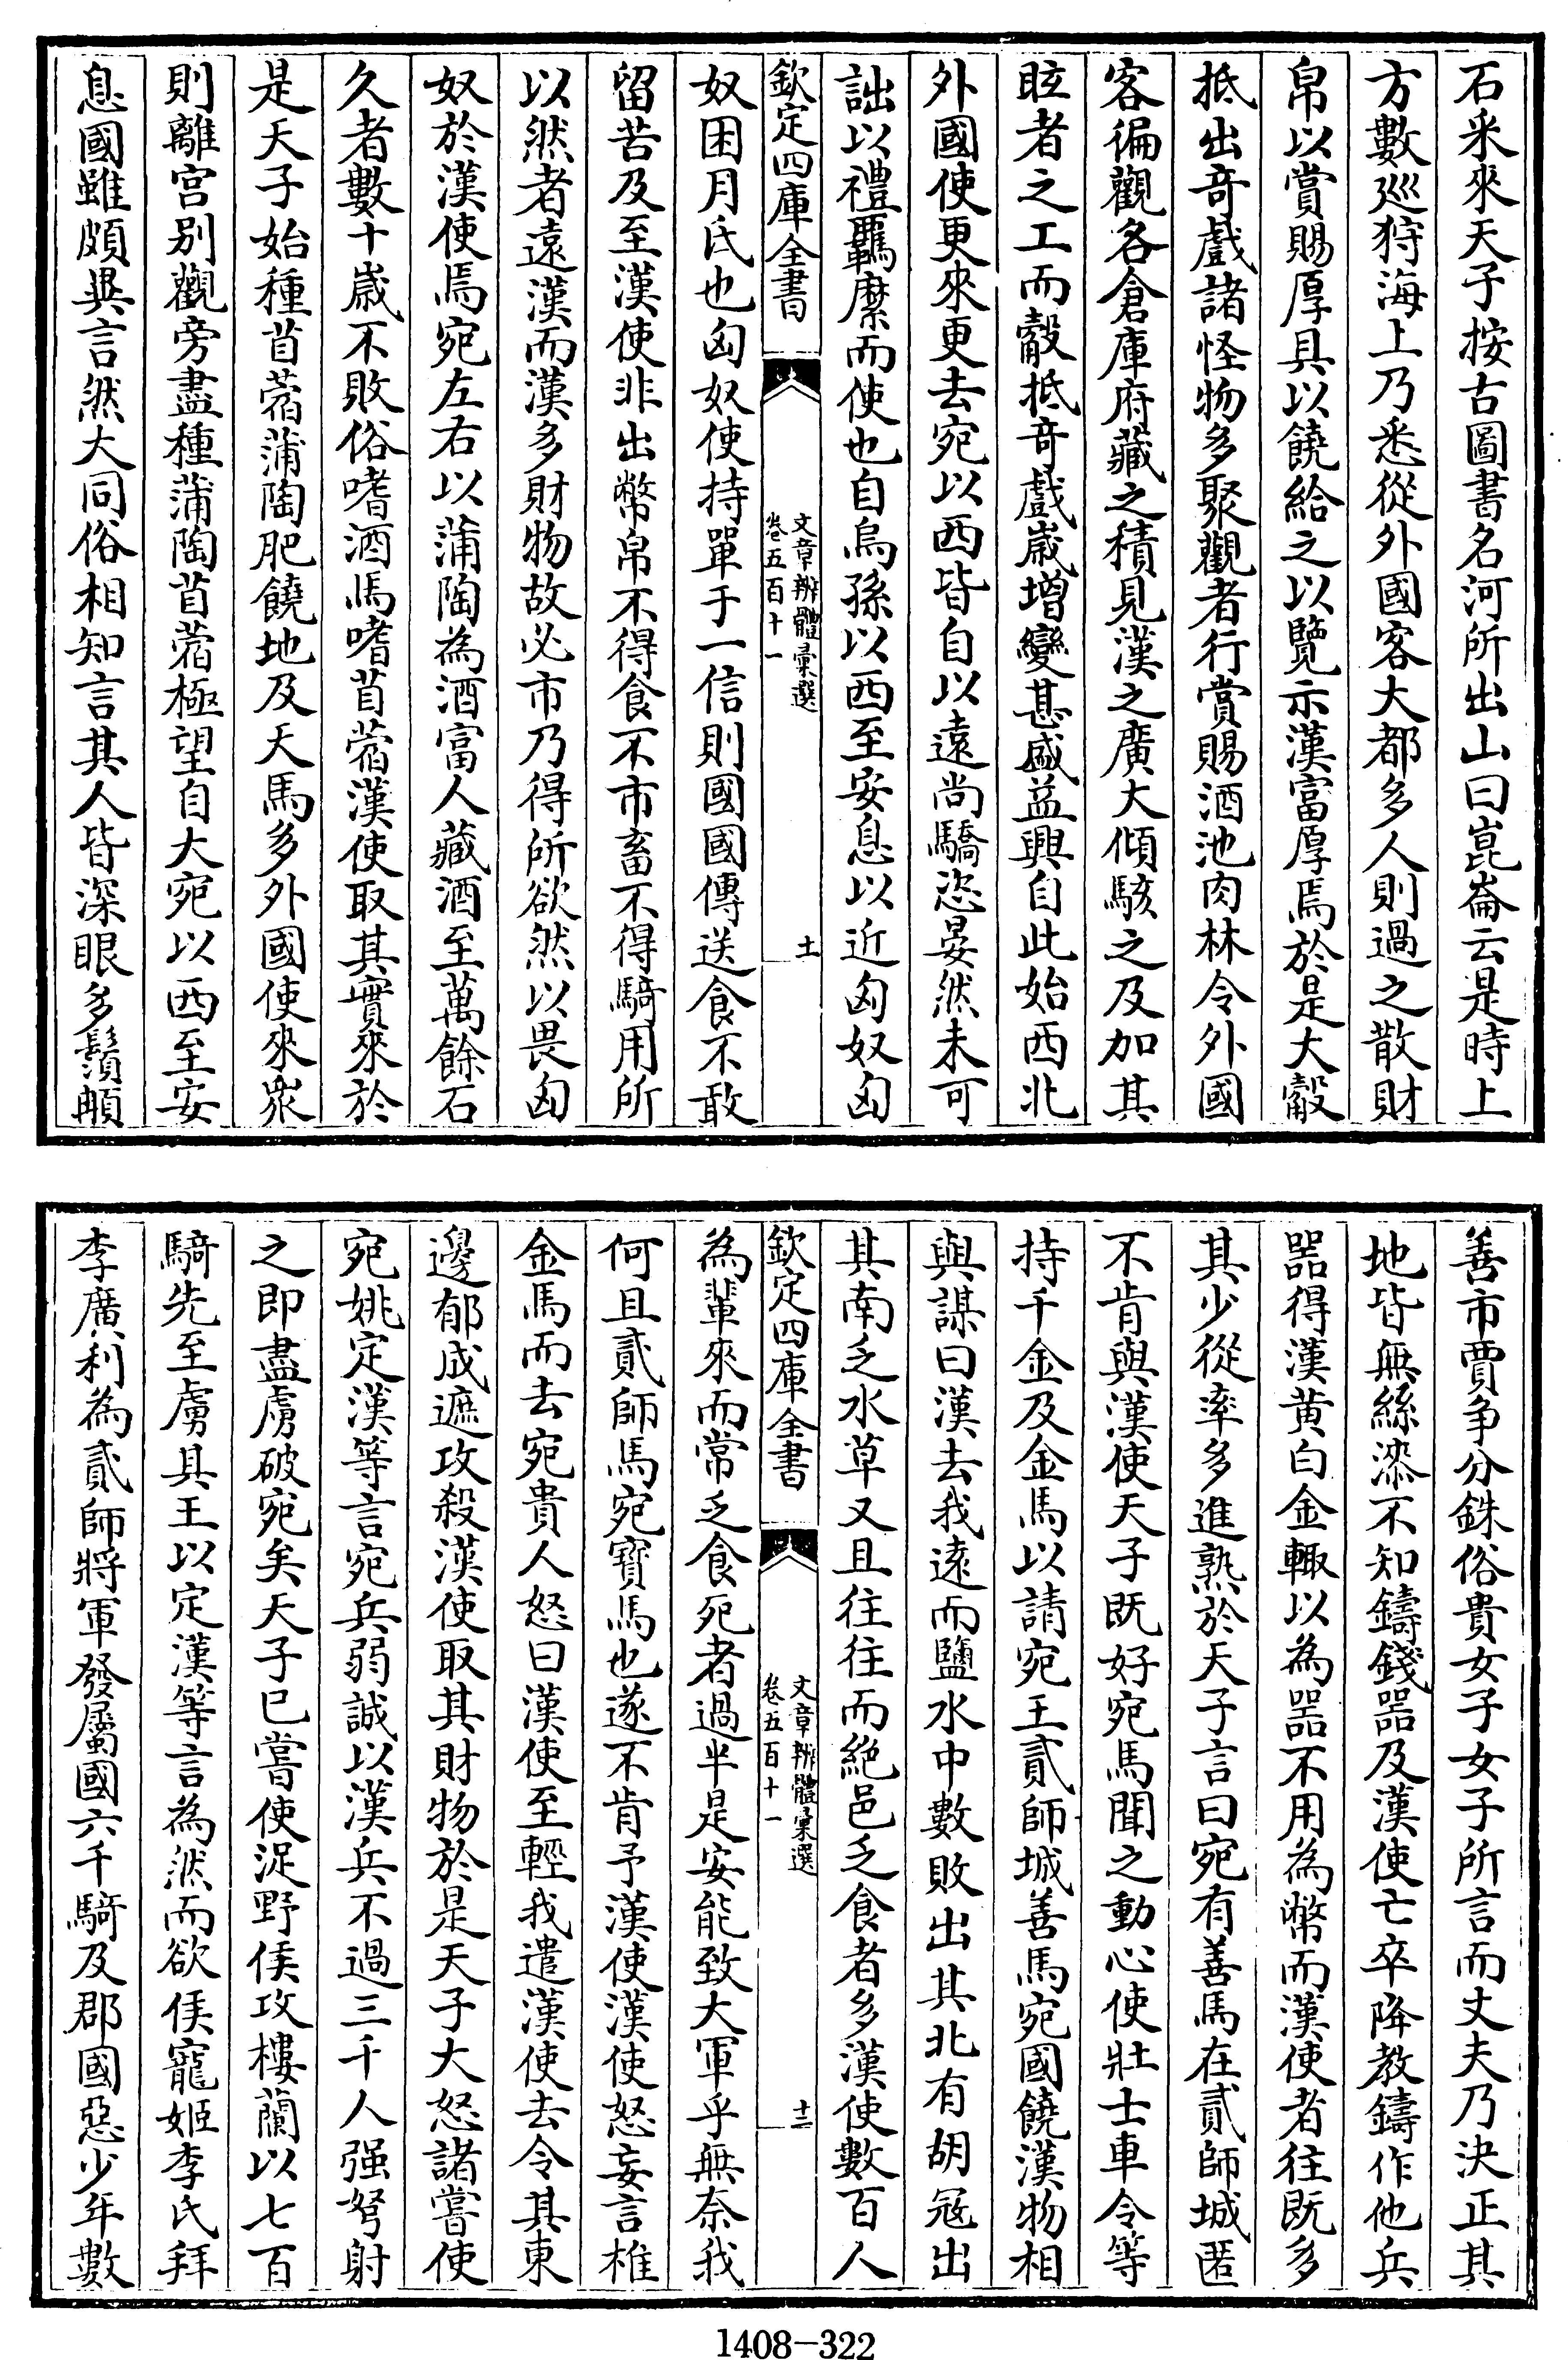 石采來天子按古圖書名河所出山曰崑崙云是時上
方數廵狩海上乃悉從外國客大都多人則過之散財
帛以賞賜厚具以饒給之以覽示漢富厚焉於是大觳
抵出竒戲諸怪物多聚觀者行賞賜酒池肉林令外國
客徧觀各倉庫府藏之積見漢之廣大傾駭之及加其
眩者之工而觳抵竒戲歲增變甚盛益興自此始西北
外國使更來更去宛以西皆自以遠尚驕恣晏然未可
詘以禮羈縻而使也自烏孫以西至安息以近匈奴匈
欽定四庫全書
文章辨體彙選
卷五百十一
十一
奴困月氏也匈奴使持單于一信則國國傳送食不敢
留苦及至漢使非出幣帛不得食不市畜不得騎用所
以然者遠漢而漢多財物故必市乃得所欲然以畏匈
奴於漢使焉宛左右以蒲陶為酒富人藏酒至萬餘石
久者數十歲不敗俗嗜酒馬嗜苜蓿漢使取其實來於
是天子始種苜蓿蒲陶肥饒地及天馬多外國使來衆
則離宫别觀旁盡種蒲陶苜蓿極望自大宛以西至安
息國雖頗異言然大同俗相知言其人皆深眼多鬚𩑺
善市賈争分銖俗貴女子女子所言而丈夫乃決正其
地皆無絲漆不知鑄錢器及漢使亡卒降教鑄作他兵
器得漢黄白金輙以為器不用為幣而漢使者往既多
其少從率多進熟於天子言曰宛有善馬在貳師城匿
不肯與漢使天子既好宛馬聞之動心使壯士車令等
持千金及金馬以請宛王貳師城善馬宛國饒漢物相
與謀曰漢去我逺而鹽水中數敗出其北有胡冦出
其南乏水草又且往往而絶邑乏食者多漢使數百人
欽定四庫全書
文章辨體彙選
卷五百十一
十二
為輩來而常乏食死者過半是安能致大軍乎無奈我
何且貳師馬宛寶馬也遂不肯予漢使漢使怒妄言椎
金馬而去宛貴人怒曰漢使至輕我遣漢使去令其東
邊郁成遮攻殺漢使取其財物於是天子大怒諸嘗使
宛姚定漢等言宛兵弱誠以漢兵不過三千人强弩射
之即盡虜破宛矣天子已嘗使浞野侯攻樓蘭以七百
騎先至虜其王以定漢等言為然而欲侯寵姬李氏拜
李廣利為貳師將軍發屬國六千騎及郡國惡少年數
1408-322